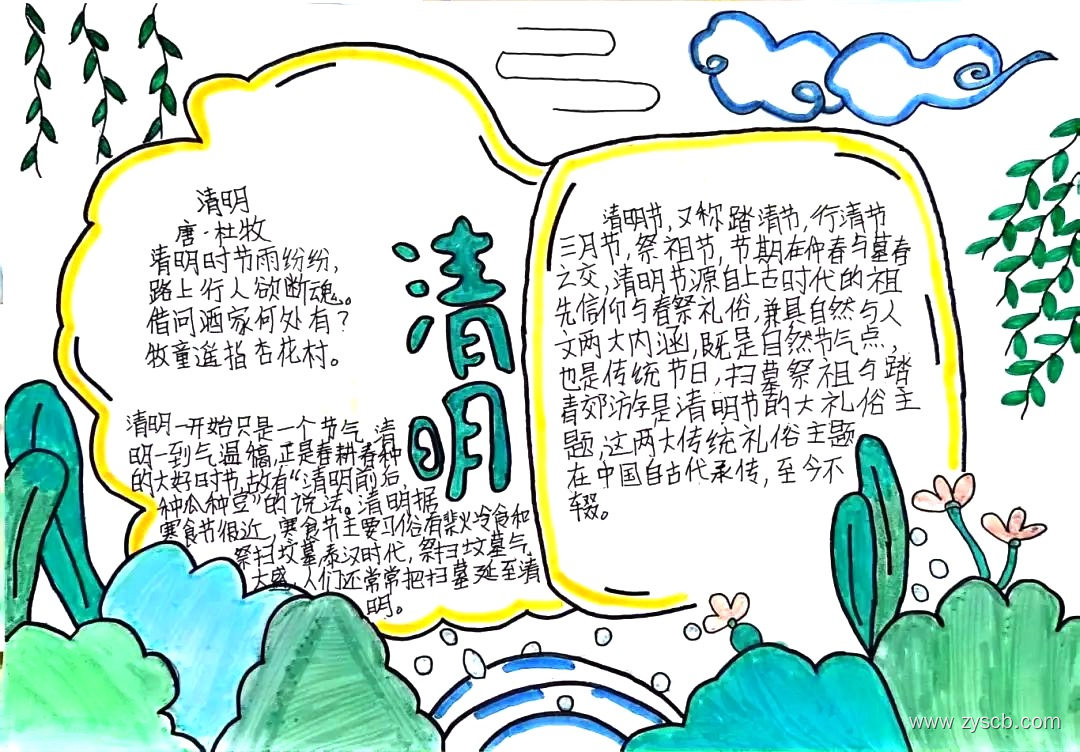 清明
唐·杜牧
清明时节雨纷纷，
路上行人欲断魂。
借问酒家何处有？
牧童遥指杏花村。
清明
清明一开始只是一个节气,清
明一到气温
正是春耕春种
的大好时节,故有“清明前后，
种瓜种豆”的说法。清明据
寒食节很近，寒食节主要习俗有
火冷食和
祭扫坟墓
汉时代，祭扫坟墓气
大盛，人们还常常把扫墓延至清
明。
清明节,又称踏清节,行清节
三月节,祭祖节,节期在仲春与暮春
之交,清明节源自上古时代的祖
先信仰与春祭礼俗,兼具自然与人
文两大内涵,既是自然节气点,
也是传统节日,扫墓祭祖与踏
青郊游是清明节的大礼俗主
题,这两大传统礼俗主题
在中国自古代承传,至今不
辍。
www.zyscb.com